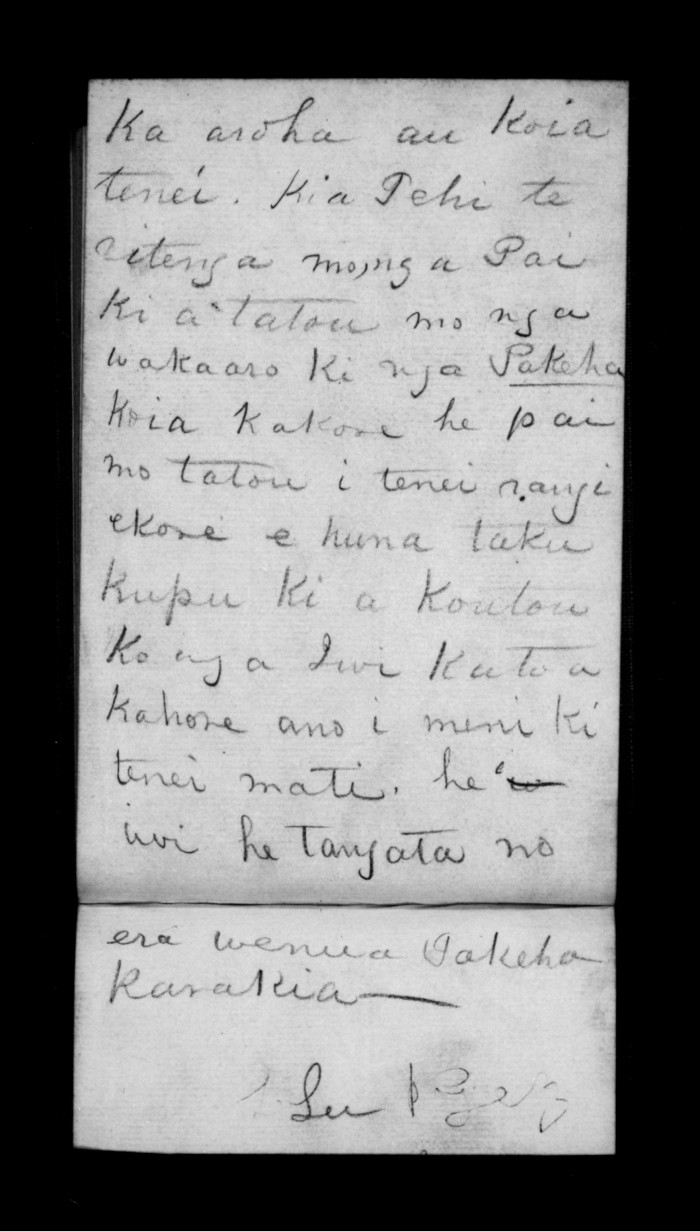 Ka aroha au Koia
tenei. Kia Pehi te
ritenga mo nga Pai
Ki a tatou mo nga
wakaaro Ki nga Pakeha
Koia Kakore he pai
mo tatou i tenei rangi
ekore e huna taku
Kupu Ki a Koutou
Ko nga Iwi Katoa
Kahore ano i meni Ki
tenei mati. he
iwi he tangata no
era wenua Pakeha
Karakia